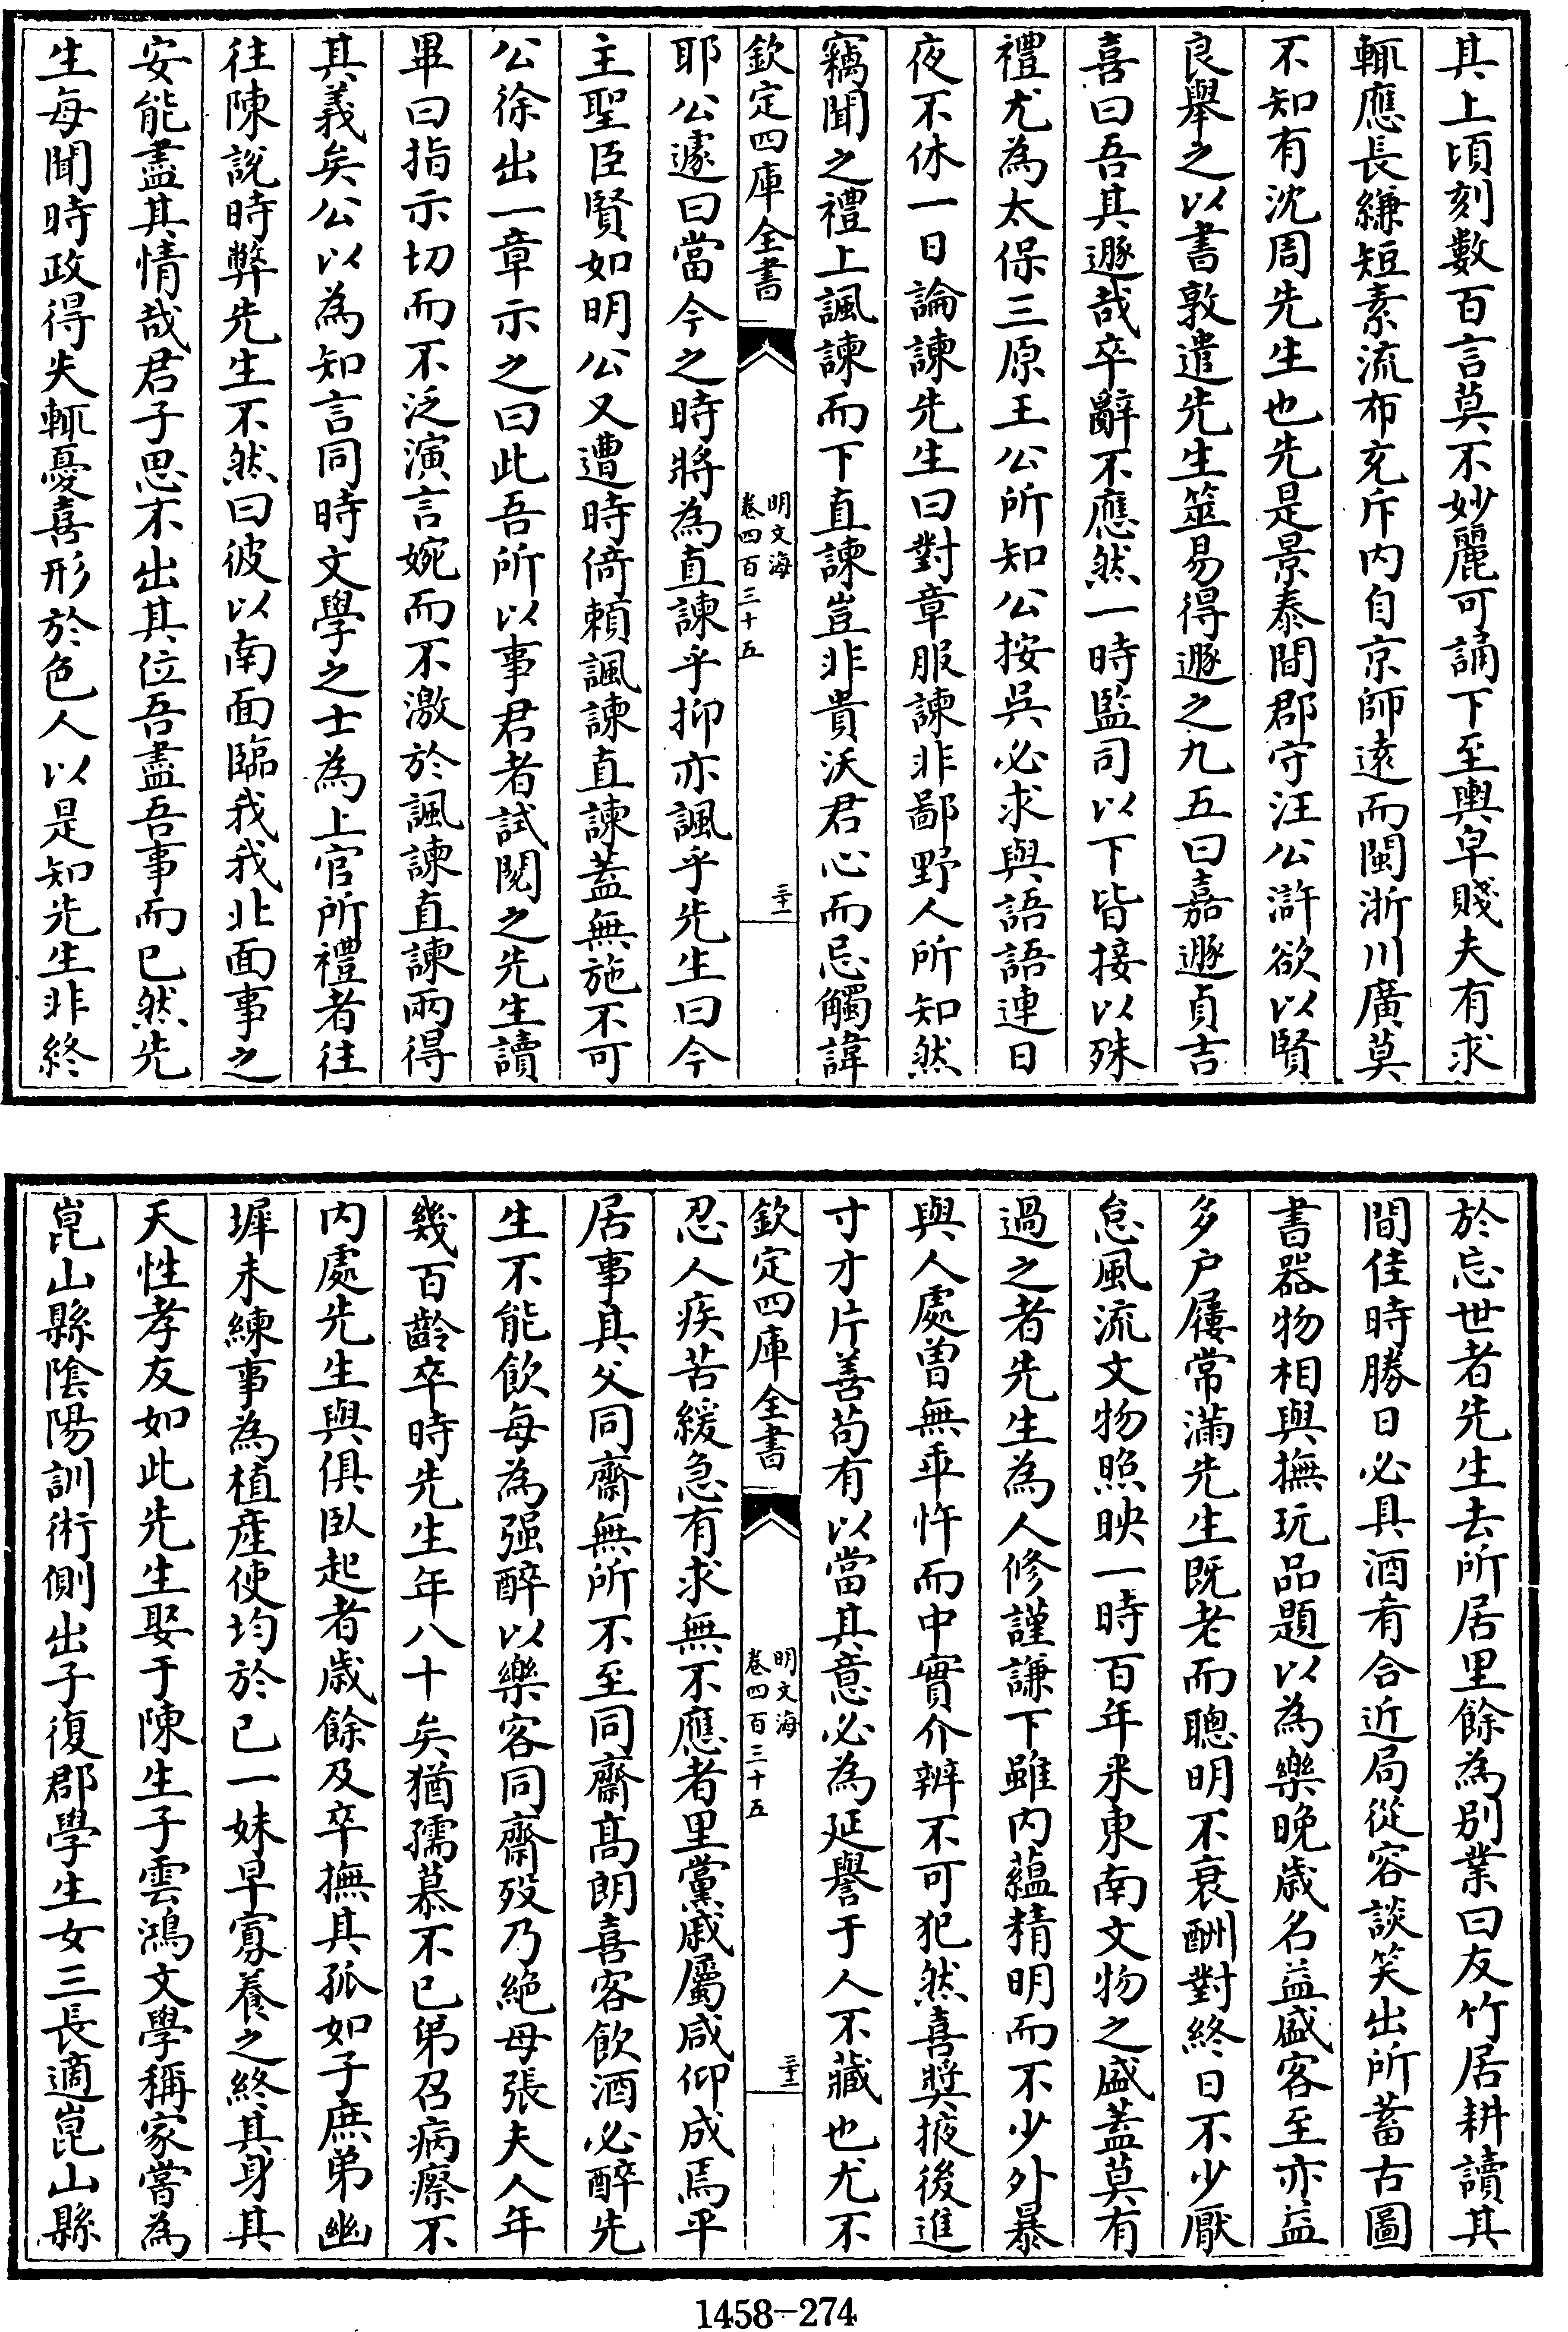 其上頃刻數百言莫不妙麗可誦下至輿皁賤夫有求
輒應長縑短素流布充斥内自京師逺而閩浙川廣莫
不知有沈周先生也先是景泰間郡守汪公滸欲以賢
良舉之以書敦遣先生筮易得遯之九五曰嘉遯貞吉
喜曰吾其遯哉卒辭不應然一時監司以下皆接以殊
禮尤為太保三原王公所知公按吳必求與語語連日
夜不休一日論諫先生曰對章服諫非鄙野人所知然
竊聞之禮上諷諫而下直諫豈非貴沃君心而忌觸諱
欽定四庫全書
明文海
卷四百三十五
三十一
耶公遽曰當今之時將為直諫乎抑亦諷乎先生曰今
主聖臣賢如明公又遭時倚賴諷諫直諫蓋無施不可
公徐出一章示之曰此吾所以事君者試閱之先生讀
畢曰指示切而不泛演言婉而不激於諷諫直諫兩得
其義矣公以為知言同時文學之士為上官所禮者往
往陳說時弊先生不然曰彼以南面臨我我北面事之
安能盡其情哉君子思不出其位吾盡吾事而已然先
生每聞時政得失輒憂喜形於色人以是知先生非終
於忘世者先生去所居里餘為别業曰友竹居耕讀其
間佳時勝日必具酒肴合近局從容談笑出所蓄古圖
書器物相與撫玩品題以為樂晚歲名益盛客至亦益
多户屨常滿先生既老而聰明不衰酬對終日不少厭
怠風流文物照映一時百年来東南文物之盛蓋莫有
過之者先生為人修謹謙下雖内蘊精明而不少外暴
與人處曽無乖忤而中實介辨不可犯然喜奬掖後進
寸才片善苟有以當其意必為延譽于人不藏也尤不
欽定四庫全書
明文海
卷四百三十五
三十二
忍人疾苦緩急有求無不應者里黨戚屬咸仰成焉平
居事其父同齋無所不至同齋髙朗喜客飲酒必醉先
生不能飲每為强醉以樂客同齋殁乃絶母張夫人年
幾百齡卒時先生年八十矣猶孺慕不已弟召病瘵不
内處先生與俱臥起者歲餘及卒撫其孤如子庶弟豳
墀未練事為植産使均於已一妹早寡養之終其身其
天性孝友如此先生娶于陳生子雲鴻文學稱家嘗為
崑山縣陰陽訓術側出子復郡學生女三長適崑山縣
1458-274